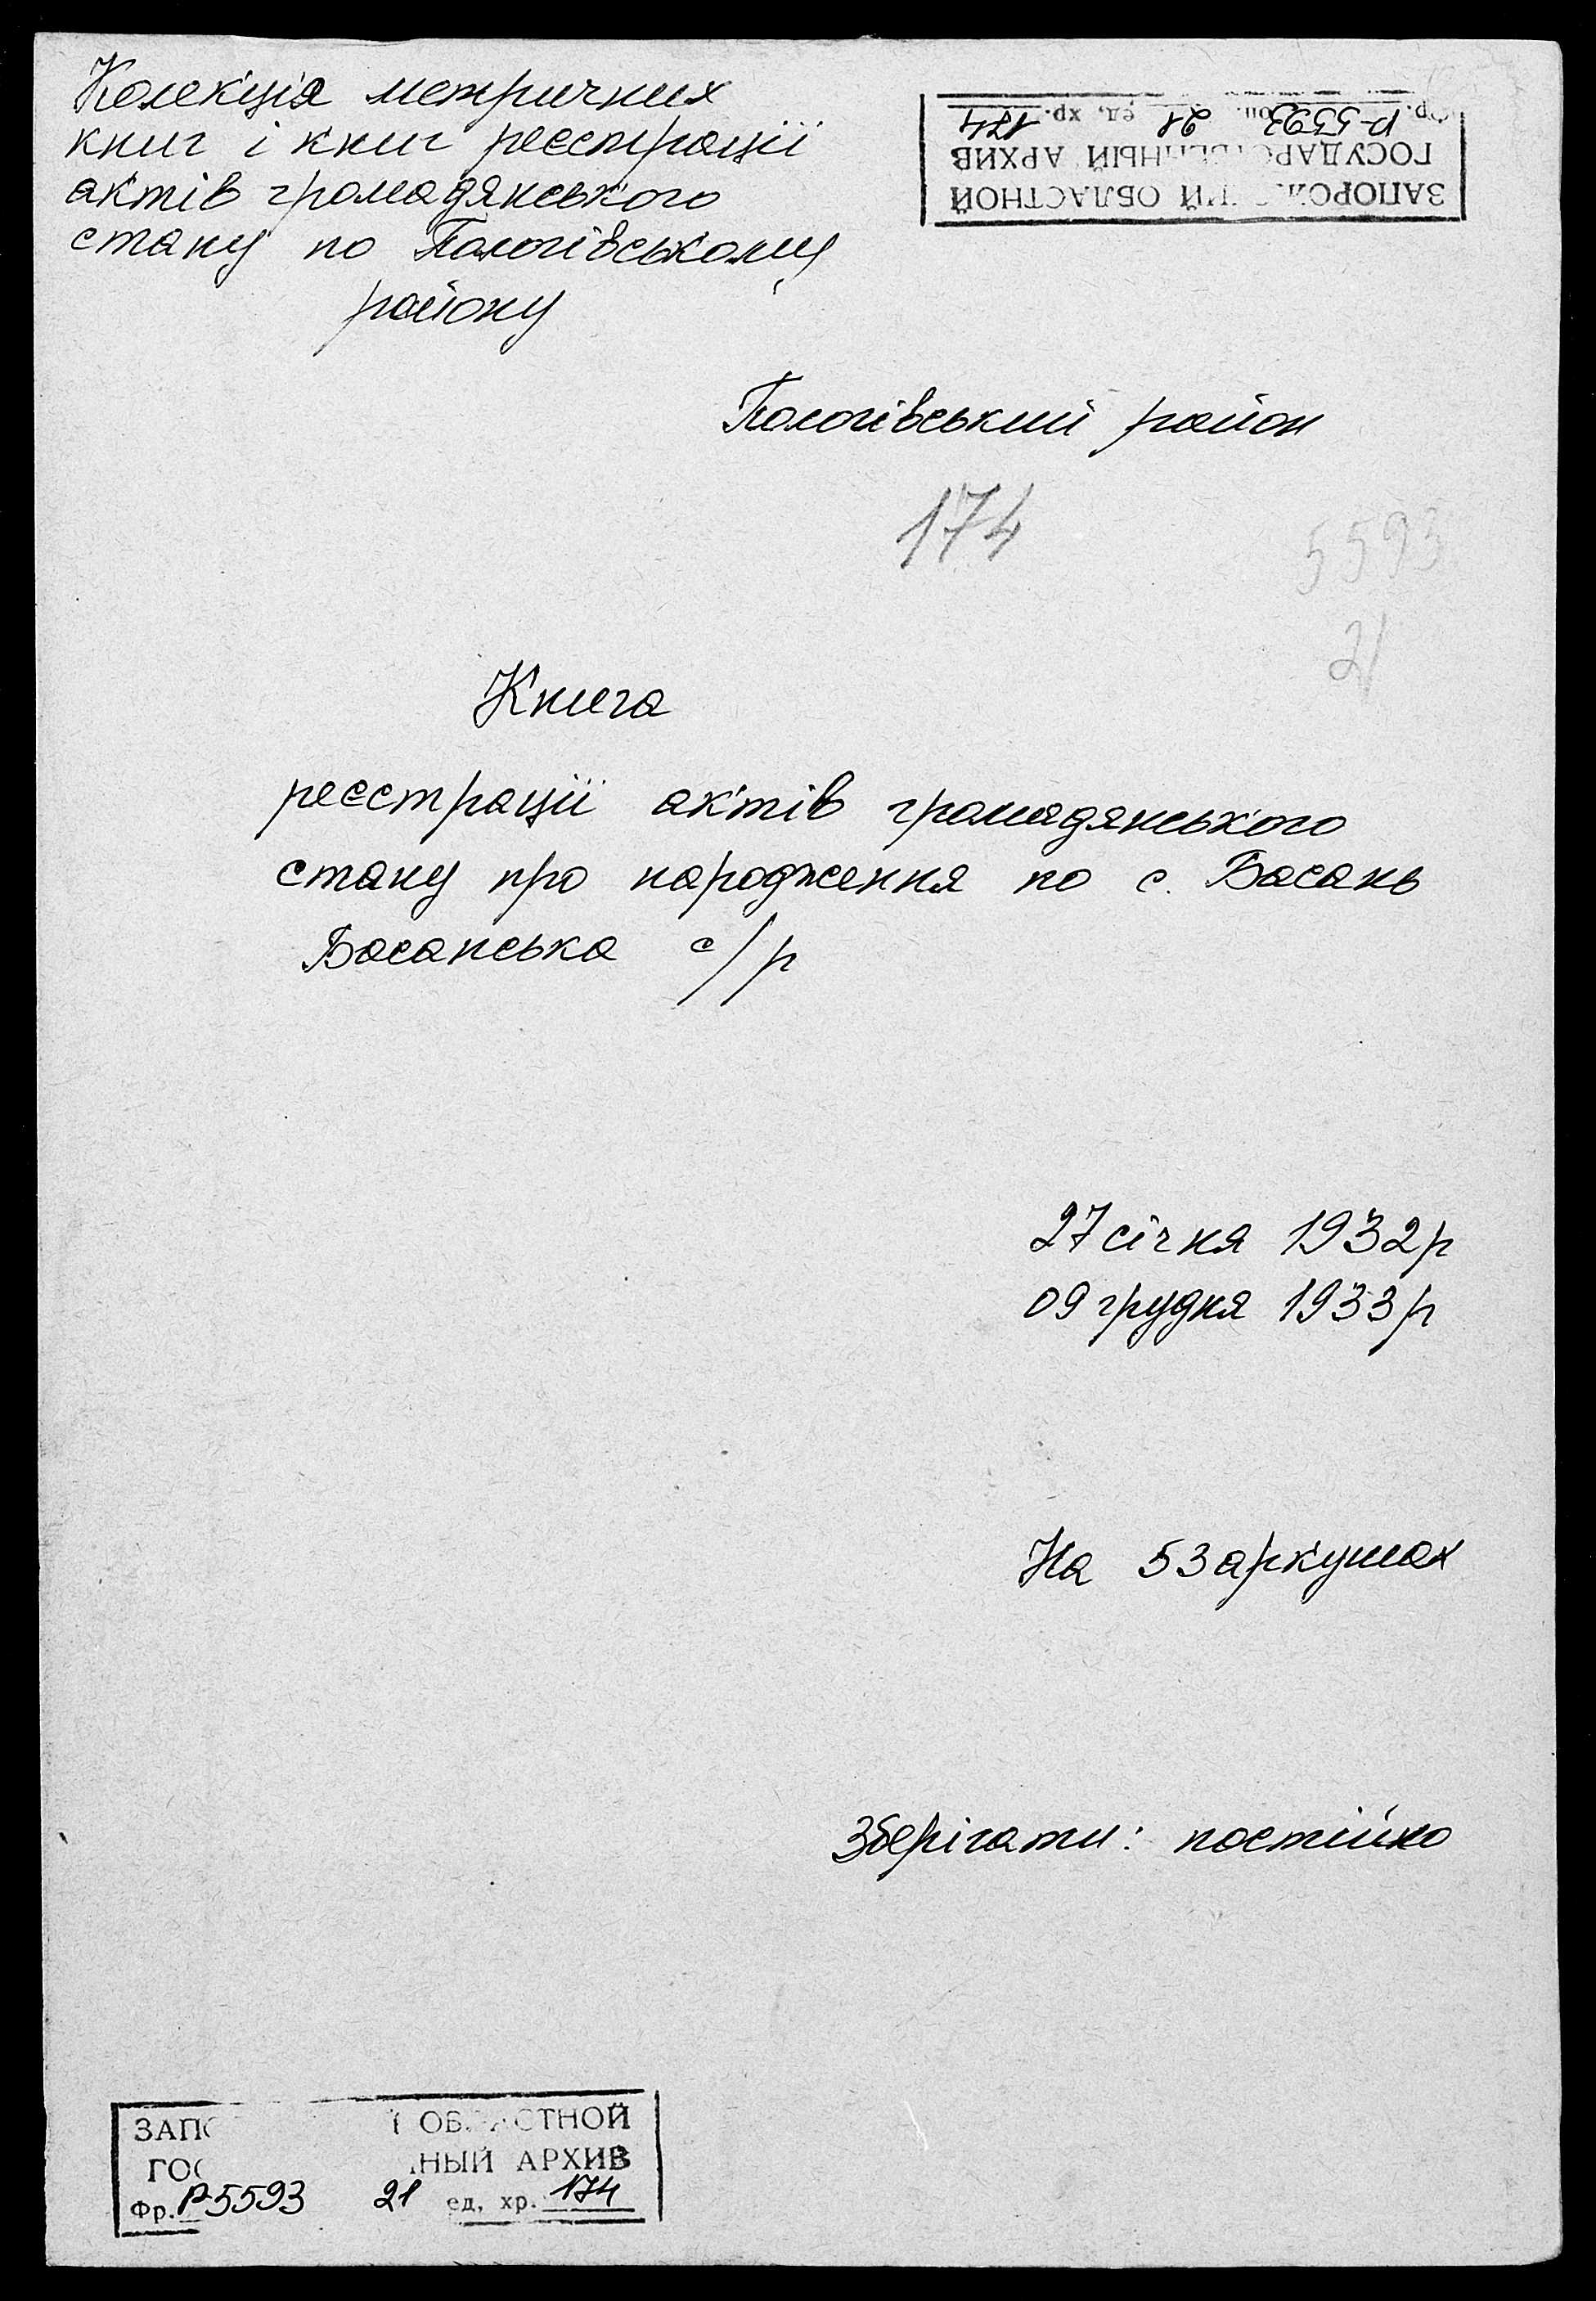 Колекція метричних
книг і книг реєстрації
актів громадянського
стану по Пологівському
району
ЗАПОРОЖСКИЙ ОБЛАСТНОЙ
ГОСУДАРСТВЕННЫЙ АРХИВ
Фр. Р-5593 оп. 21 ед. хр. 174
Пологівський район
174
5593
21
Книга
реєстрації актів громадянського
стану про народження по с. Басань
Басанська с/р
27 січня 1932 р
09 грудня 1933 р
На 53 аркушах
Зберігати: постійно
ЗАПО Й ОБЛАСТНОЙ
ГОС НЫЙ АРХИВ
Фр. Р5593 21 ед. хр. 174